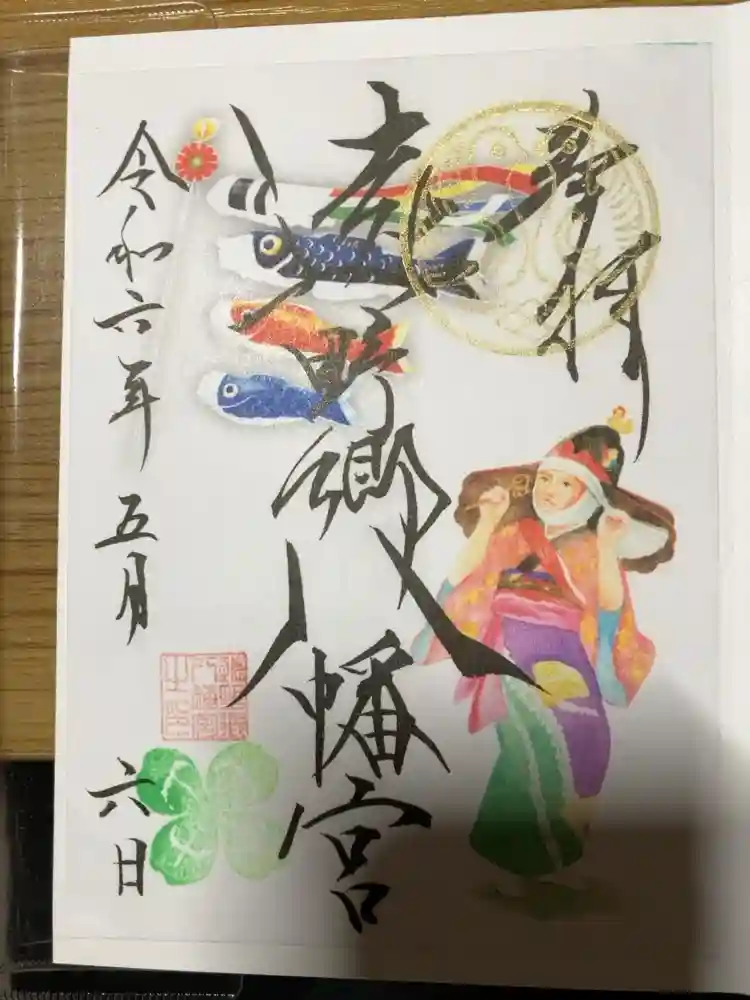 奉拝
野郷八幡宮
令和六年 五月 六日